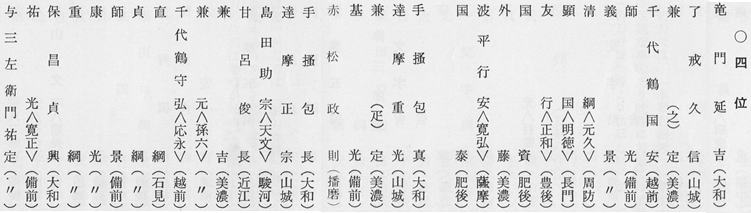 〇四位
竜門延吉(大和)
了戒久信(山城)
兼(之)定(美濃)
千代鶴国安(越前)
師光(備前)
義景(〃)
清綱<元久>(周防)
顕国<明徳>(長門)
友行<正和>(豊後)
国資(肥後)
外藤(美濃)
波平行安<寛弘>(薩摩)
国泰(肥後)
手掻包真(大和)
達摩重光(山城)
兼(疋)定(美濃)
基光(備前)
赤松政則(播磨)
手掻包長(大和)
達摩正宗(山城)
島田助宗<天文>(駿河)
甘呂俊長(近江)
兼吉(美濃)
兼元<孫六>(〃)
千代鶴守弘<応永>(越前)
直綱(石見)
貞綱(〃)
師景(備前)
康光(〃)
重綱(〃)
保昌貞興(大和)
祐光<寛正>(備前)
与三左衛門祐定(〃)